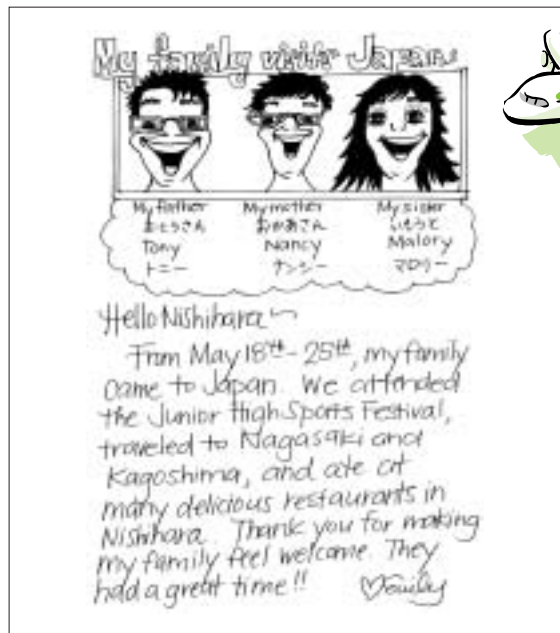 My family visits Japan!
My father My mother My sister
おとうさん おかあさん いもうと
Tony Nancy Malory
トニー ナンシー マロリー
Hello Nishihara~
From May 18th - 25th, my family
came to Japan. We attended
the Junior High Sports Festival,
traveled to Nagasaki and
Kagoshima, and ate at
many delicious restaurants in
Nishihara. Thank you for making
my family feel welcome. They
had a great time!! ♡Emily